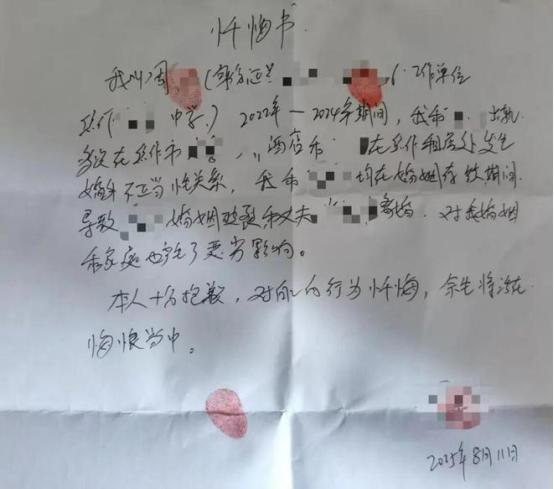 忏悔书
我叫周（身份证：（工作单位
焦作中学）2022年—2024年期间，我和出轨
多次在焦作市、酒店和在焦作租房处发生
婚外不正当性关系，我和均在婚姻存续期间
导致婚姻破裂和丈夫离婚。对我婚姻
和家庭也造成了恶劣影响。
本人十分抱歉，对自己的行为忏悔，余生将活在
悔恨当中。
2025年8月11日